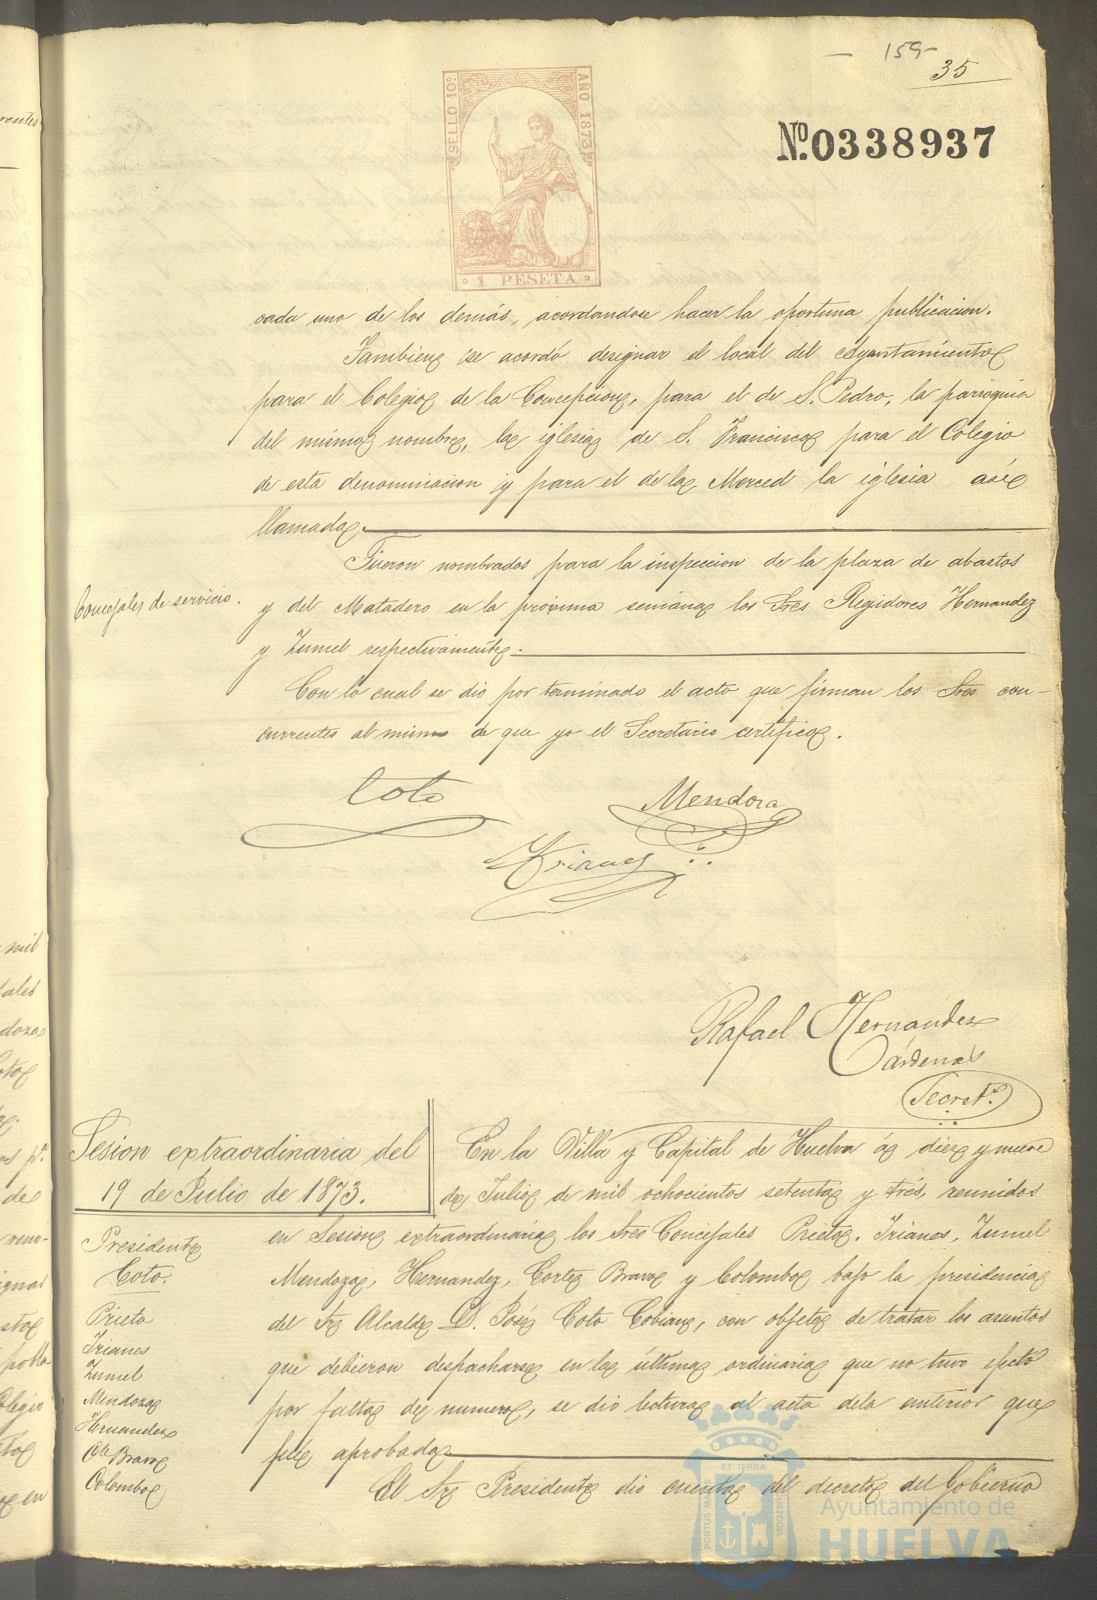 - 159-
35
SELLO 10º
AÑO 1873
1 PESETA
Nº.0338937
cada uno de los demás, acordandose hacer la oportuna publicacion.
Tambien se acordó designar el local del Ayuntamiento
para el Colegio de la Concepcion, para el de S. Pedro, la parroquia
del mismo nombre, la iglesia de S. Francisco para el Colegio
de esta denominacion y para el de la Merced la iglesia asi
llamada.
Concejales de servicio.
Fueron nombrados para la inspeccion de la plaza de abastos
y del Matadero en la próxima semana los Sres Regidores Hernandez
y Zumel respectivamente.
Con lo cual se dio por terminado el acto que firman los Sres con-
currentes al mismo de que yo el Secretario certifico.
Coto
Mendoza
Trianes
Rafael Hernandez
Cárdenas
Secretº
Sesion extraordinaria del
19 de Julio de 1873.
Presidente
Coto.
Prieto
Trianes
Zumel
Mendoza
Hernandez
Bravo
Colombo
En la Villa y Capital de Huelva á diez y nueve
de Julio de mil ochocientos setenta y trés, reunidos
en Sesion extraordinaria los Sres Concejales Prieto. Trianes, Zumel
Mendoza, Hernandez, Cortez Bravo y Colombo bajo la presidencia
del Sr Alcalde D. José Coto Cobian, con objeto de tratar los asuntos
que debieron despacharse en la última ordinaria que no tuvo efecto
por falta de numero, se dio lectura al acta dela anterior que
fué aprobada
El Sr Presidente dio cuenta del decreto del Gobierno
Ayuntamiento de
HUELVA